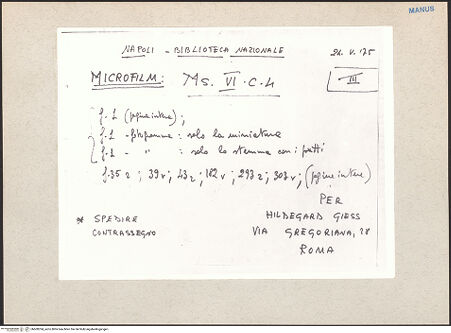 MANUS
NAPOLI - BIBLIOTECA NAZIONALE 21. V. 175
MICROFILM: Ms. VI. C. 4 III
f. 1 (pagine intere);
f. 1 - fotogramma: solo la miniatura
f. 1 - " : solo lo stemma con i putti
f. 35 r; 39 r; 43 r; 182 v; 293 r; 303 v; (pagine intere)
PER
* SPEDIRE HILDEGARD GIESS
CONTRASSEGNO VIA GREGORIANA, 28
ROMA